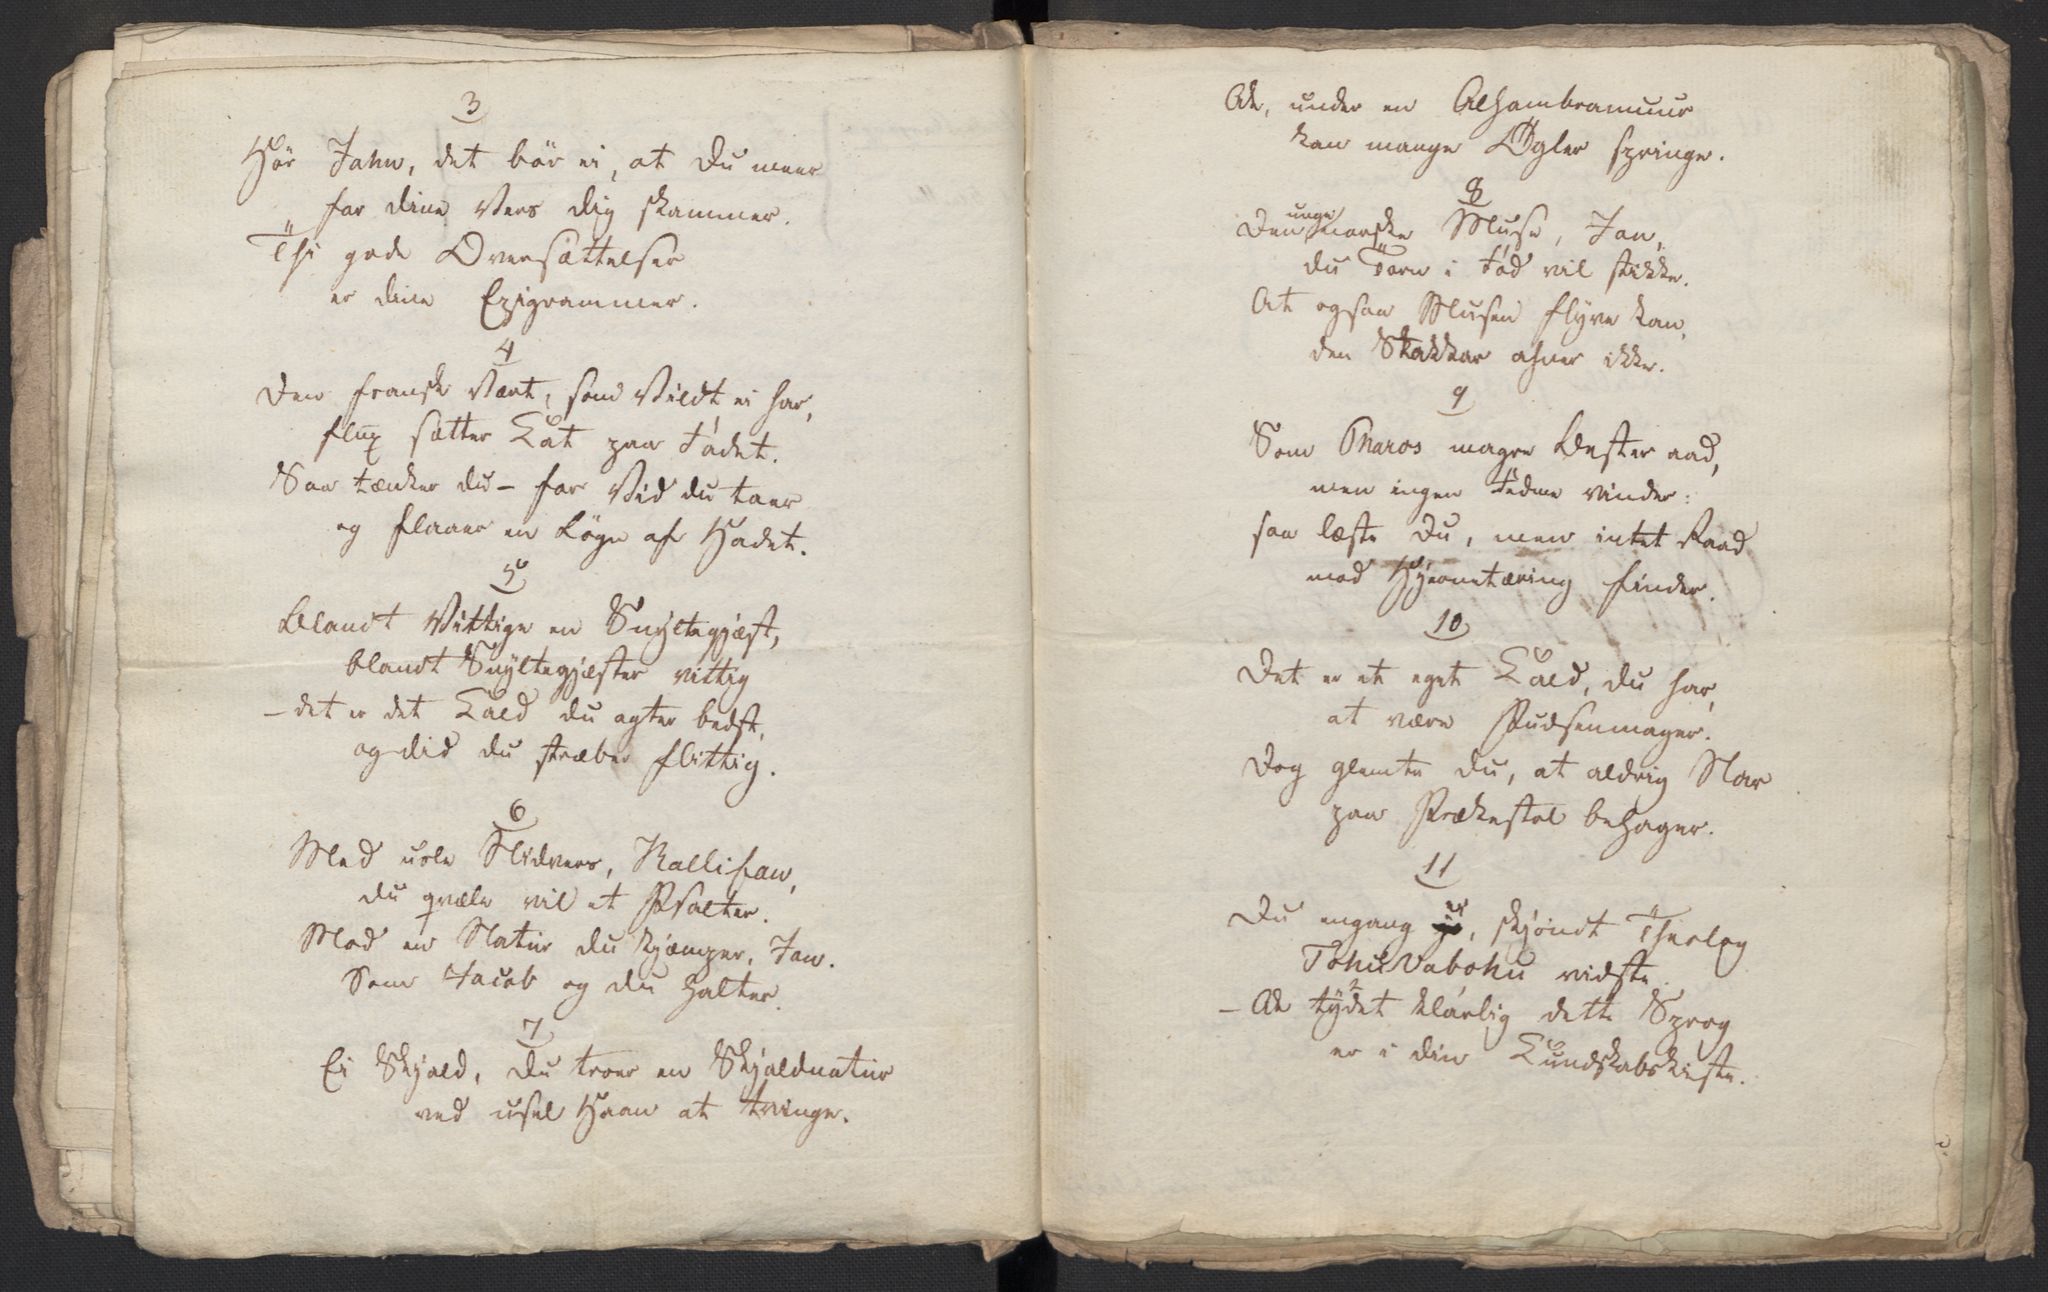 3
Hør Jahn, det bør ei, at Du meer
for dine Vers dig skammer.
Thi gode Oversættelser
er dine Epigrammer.
4
Den franske Vært, som Vildt ei har,
flux sætter Kat paa Fadet.
Saa tænker du – for Vid du taer
og flaaer en Løgn af Hadet.
5
Blandt Vittige en Snyltegjæst,
blandt Snyltegjæster vittig
– det er det Kald du agter bedst,
og did du stræber flittig.
6
Med usle Nidvers, Kallifan,
du qvæle vil et Psalter.
Mod en Natur du kjæmper, Jan.
Som Jacob og du halter.
7
Ei Skjald, du troer en Skjaldnatur
ved usel Haan at tvinge.
Ak, under en Alhambramuur
kan mange Øgler springe.
8
Den unge norske Muse, Jan,
du Torn i Fod vil stikke.
At ogsaa Musen flyve kan,
den Stakkar ahner ikke.
9
Som Pharos magre Bester aad,
men ingen Fedme vinder:
saa læste Du, men intet Raad
mod Hjernetæring finder.
10
Det er et eget Kald, du har,
at være Pudsenmager.
Dog glemte du, at aldrig Nar
paa Prækestol behager.
11
Du engang ei, skjöndt Theolog
Tohu Vabohu vidste.
– Ak tydet klarlig dette Sprog
er i din Kundskabskiste.